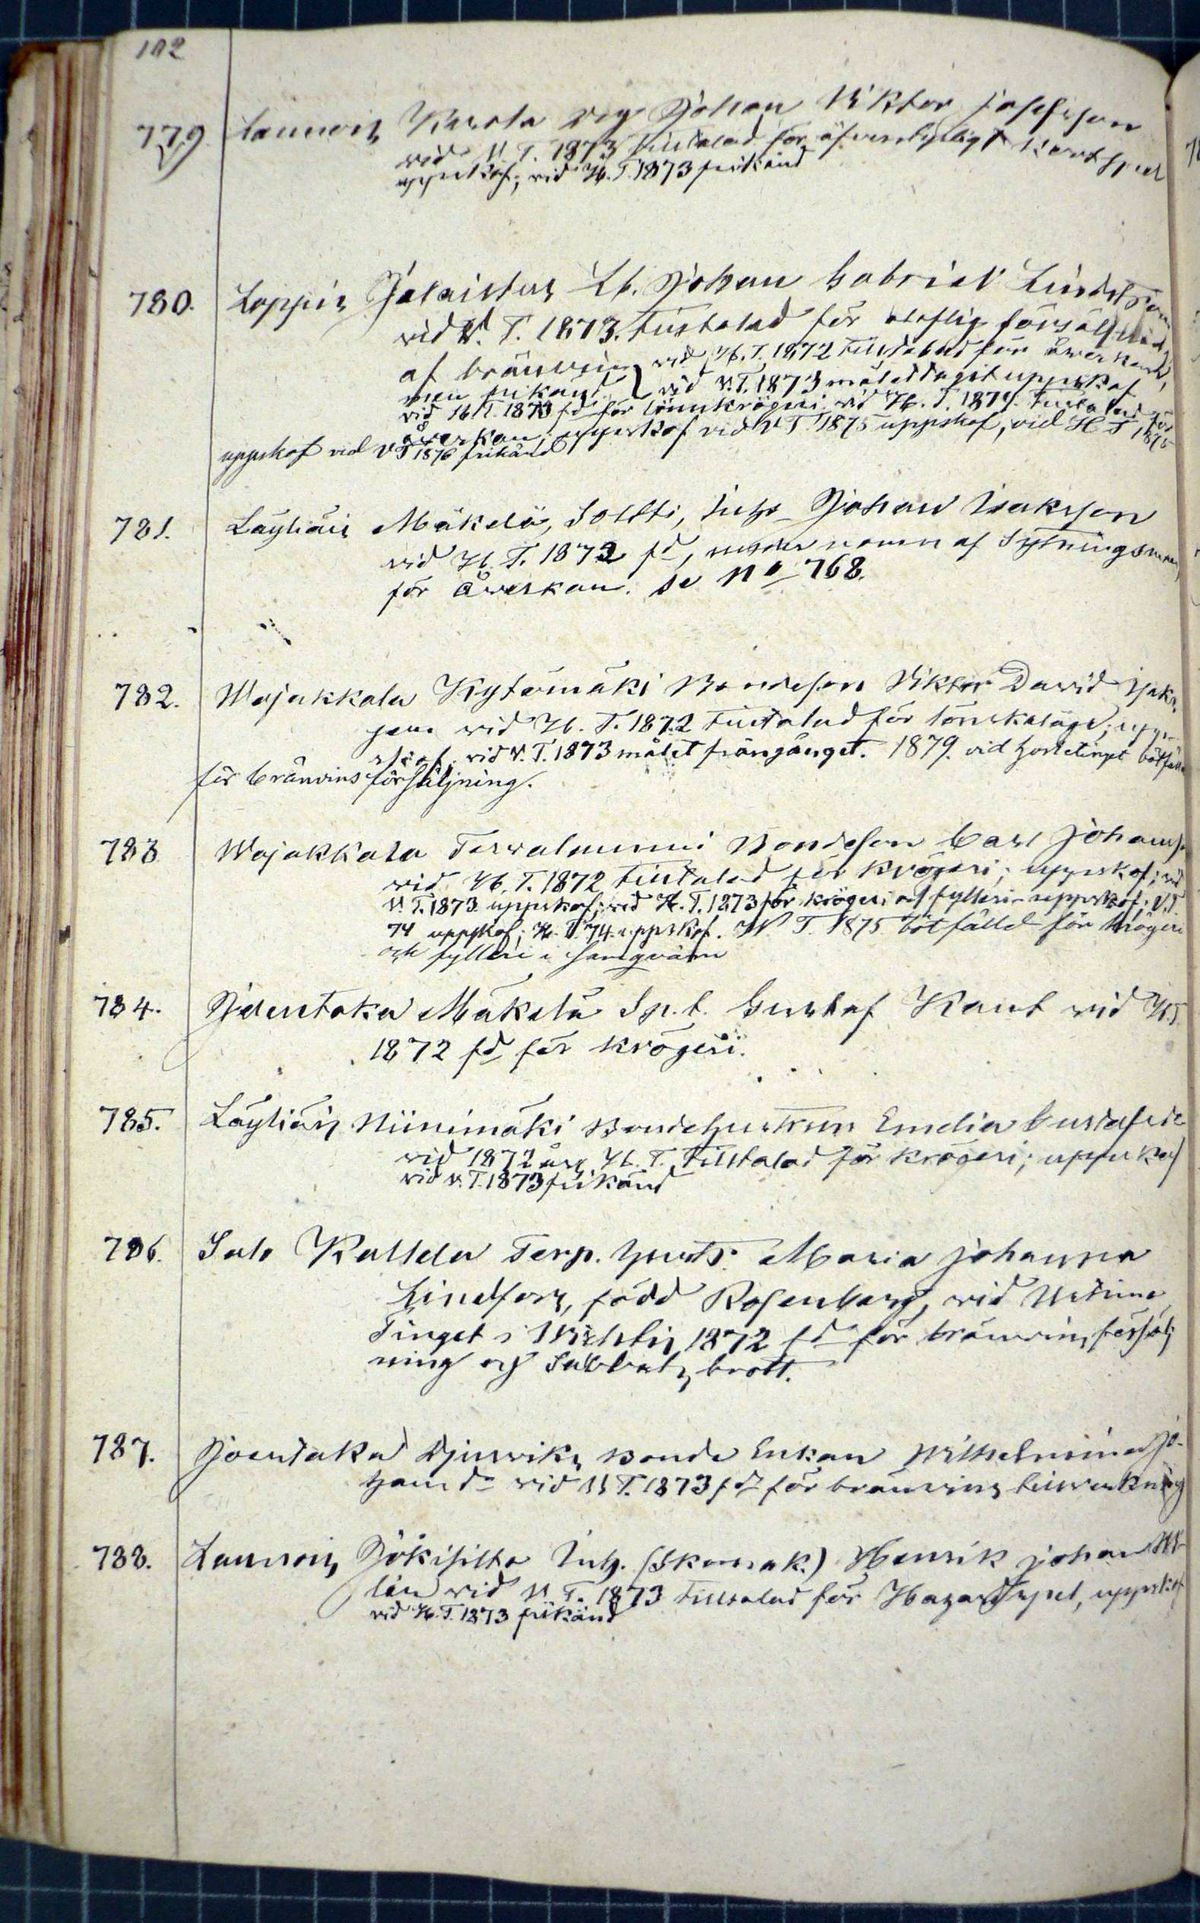 102
779. Launois Karola Drg Johan Viktor Josefsson
vid V. T. 1873 tilltalad för äfventyrligt kortspel
uppskof; vid H. T. 1873 frikänd
780. Loppis Jalaistus Johan Gabriel Lindström
vid V. T. 1873. tilltalad för olaflig försäljning
af bränvin vid H. T. 1872 tilltalad för åverkan,
men frikänd. vid V. T. 1873 målet uppskof
vid H. T. 1873 fd för lönnkrögeri. vid H. T. 1874 tilltalad för
åverkan, uppskof vid V T. 1875 uppskof, vid H T 1875
uppskof vid V T 1876 frikänd
781. Läyliäis Mäkelä, Soltti, Inhs Johan Isaksson
vid H. T. 1872 fd, under namn af Sytningsman
för åverkan. se No 768.
782. Wojakkala Kytömäki Bondeson Viktor David Isaks
son vid H. T. 1872 tilltalad för lönskaläge; upp
skof. vid V. T. 1873 målet frångånget. 1879. vid hösttinget bötfälld
för bränvins försäljning.
783 Wojakkala Tervalammi Bondeson Carl Johans
vid H. T. 1872 tilltalad för krögeri; uppskof; vid
V. T. 1873 uppskof; vid H. T. 1873 för krögeri och fylleri uppskof; V. T.
74 uppskof; H. T. 74 uppskof. W T. 1875 bötfälld för krögeri
och fylleri i
784. Sjauntaka Mäkelä Gustaf Kant vid H T
1872 fd för krögeri.
785. Läyliäis Niinimäki Bondehustrun Emelia Gustafsd
vid 1872 års H. T. tilltalad för krögeri; uppskof
vid V. T. 1873 frikänd
786. Salo Kallela Torp. hust. Maria Johanna
Lindfors, född Rosenberg, vid Urtima
Tinget i Wichtis 1872 fd för bränvins försälj
ning och Sabbats brott.
787. Sjoentaka Djurvik Bonde Enkan Wilhelmina Jo-
hansd vid V T. 1873 fd för bränvins tillverkning
788. Launois Jokisilta Inh. (Skomak.) Henrik Johan
lin vid V. T. 1873 tilltalad för Hazardspel, uppskof
vid H. T. 1873 frikänd